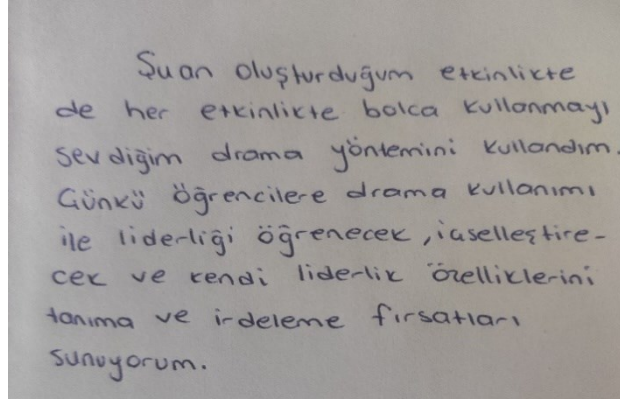 Şuan oluşturduğum etkinlikte
de her etkinlikte bolca kullanmayı
sevdiğim drama yöntemini kullandım.
Günkü öğrencilere drama kullanımı
ile liderliği öğrenecek, içselleştire-
cek ve kendi liderlik özelliklerini
tanıma ve irdeleme fırsatları
sunuyorum.